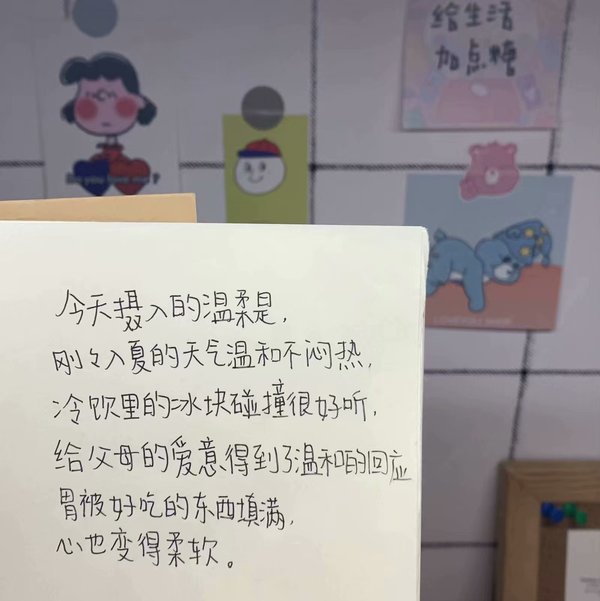 给生活
加点糖
Do you love me?
今天摄入的温柔是,
刚々入夏的天气温和不闷热,
冷饮里的冰块碰撞很好听,
给父母的爱意得到了温和的回应
胃被好吃的东西填满,
心也变得柔软。